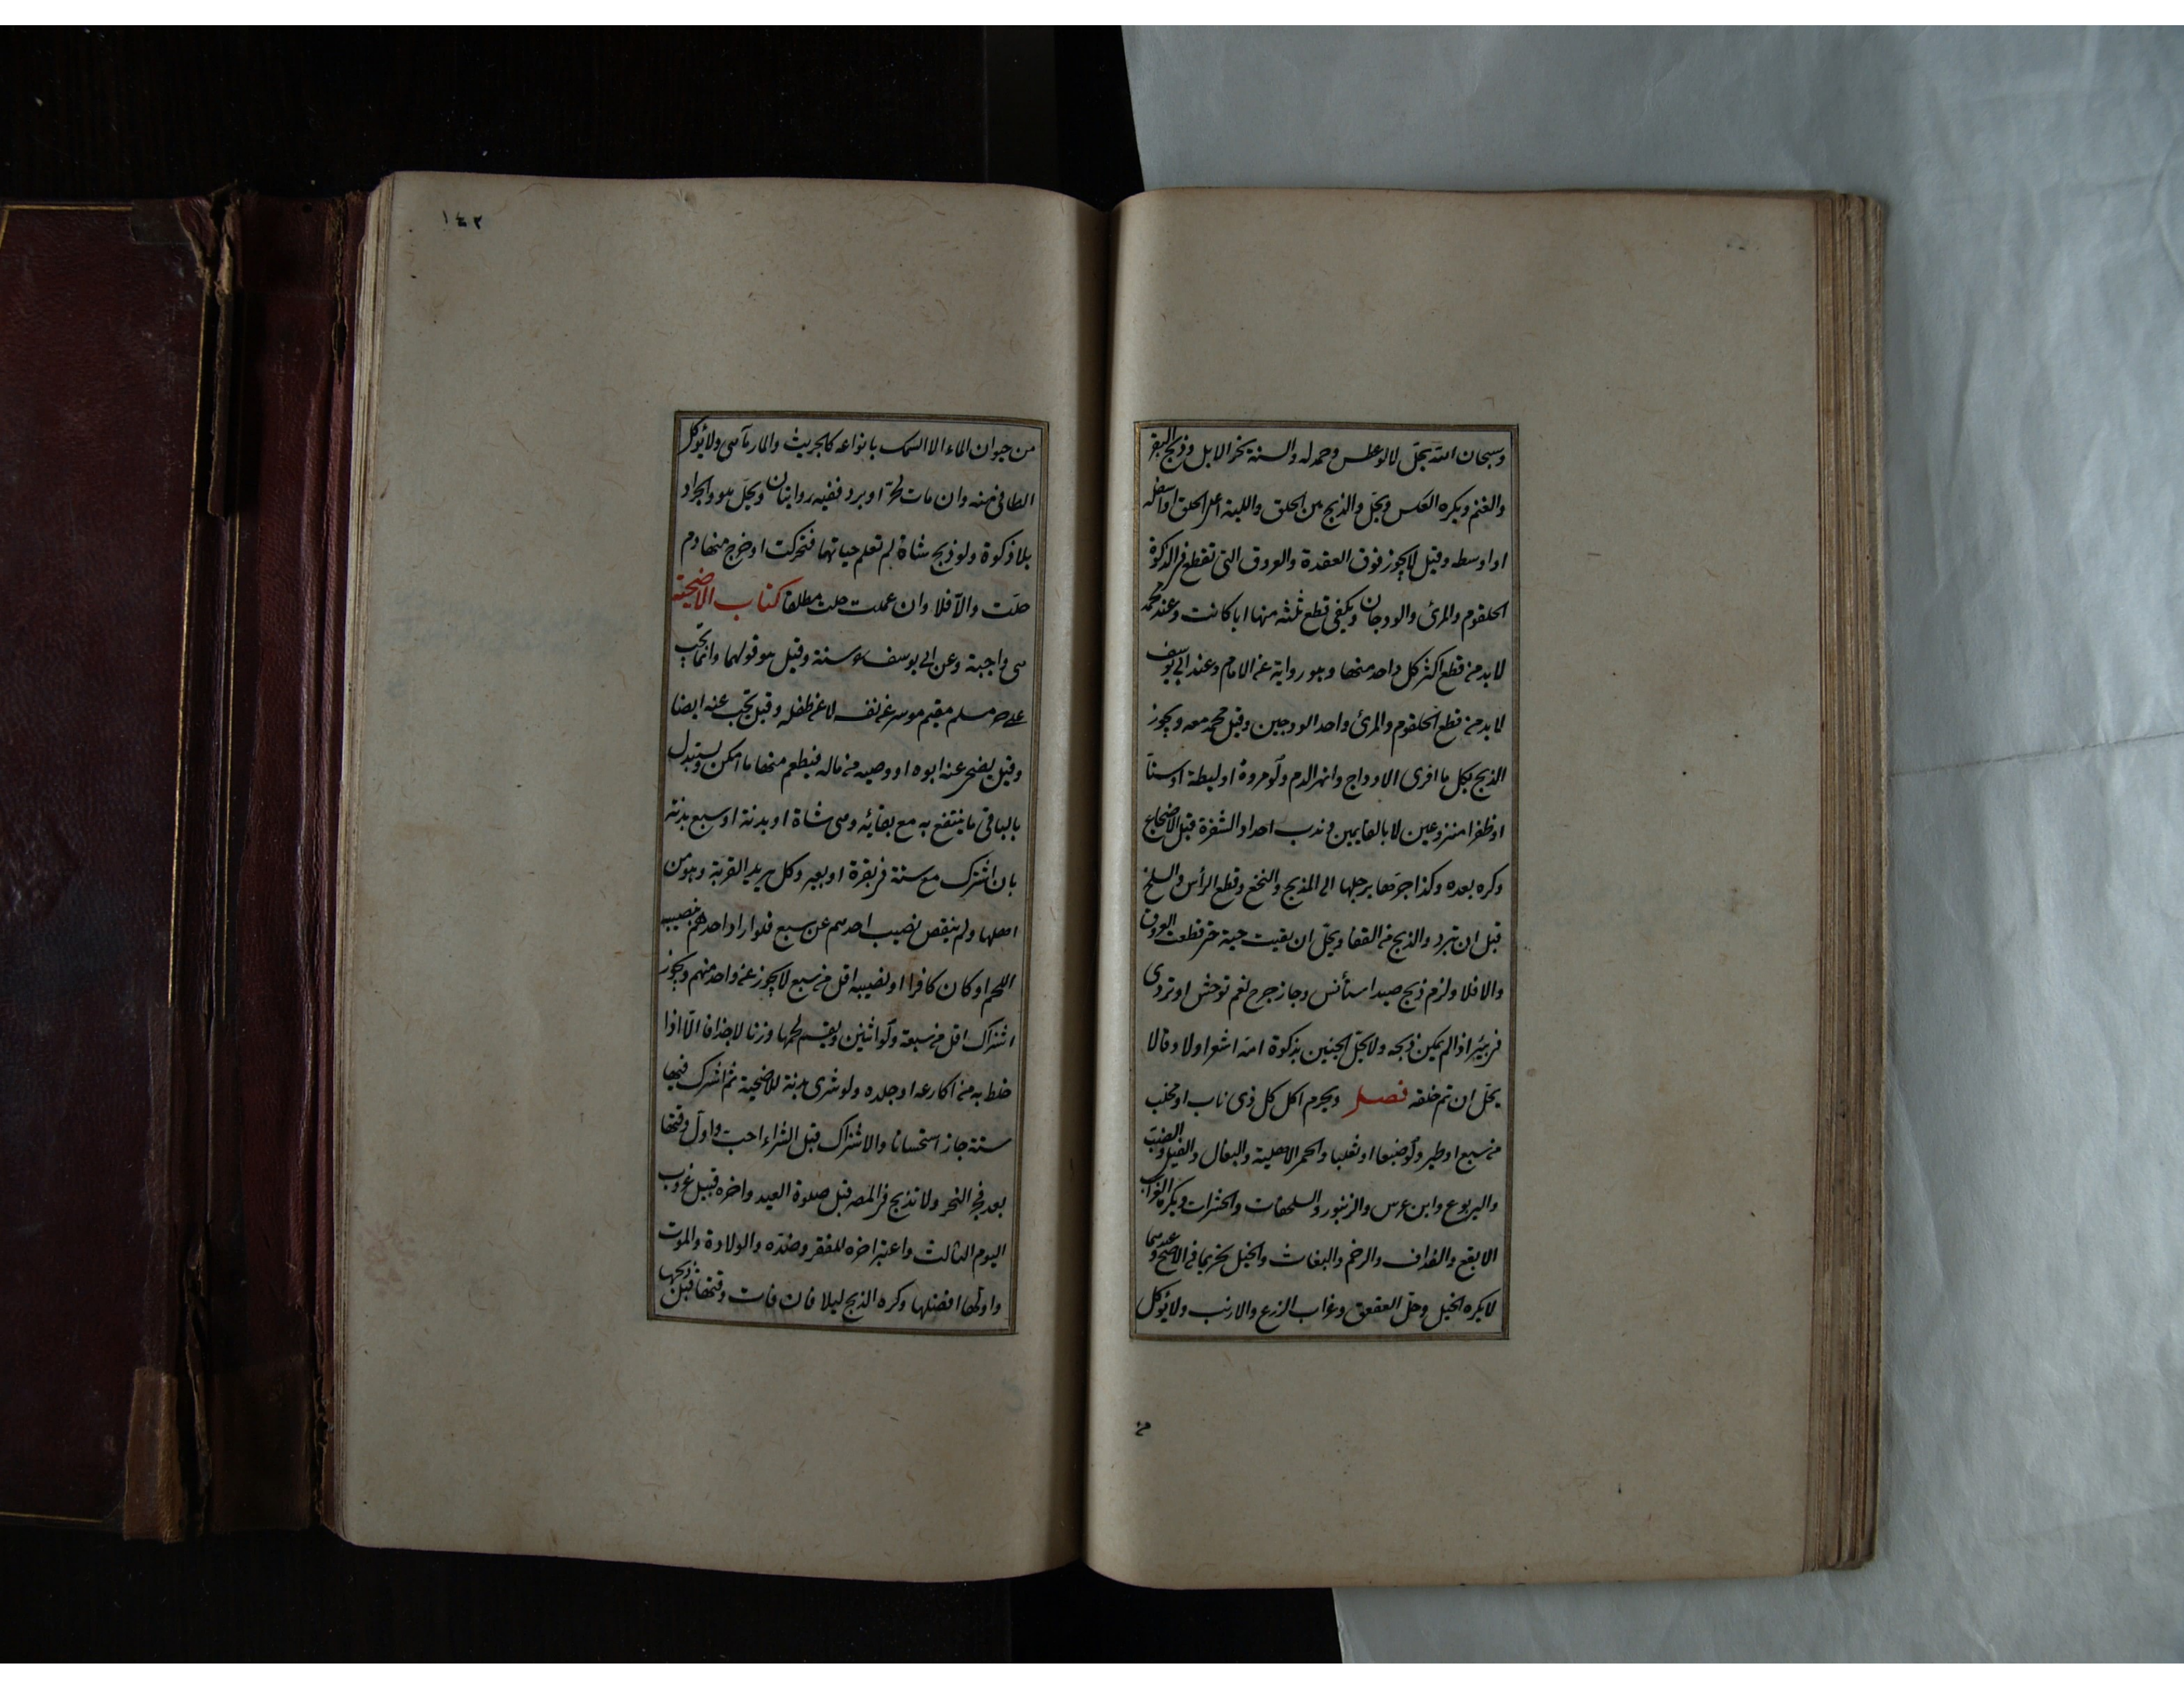 وسبحان الله يحل لا لو عطس وحمد له والسنة نحر الابل وذبح البقر
والغنم ويكره العكس ويحل والذبح بين الحلق واللبة اعلى الحلق او اسفله
او اوسطه وقيل لا يجوز فوق العقدة والعروق التى تقطع فى الذكوة
الحلقوم والمرئ والودجان ويكفى قطع ثلثة منها ايا كانت وعند محمد
لا بد من قطع اكثر كل واحد منها وهو رواية عن الامام وعند ابى يوسف
لا بد من قطع الحلقوم والمرئ واحد الودجين وقيل محمد معه ويجوز
الذبح بكل ما افرى الاوداج وانهر الدم ولو مروة او ليطة او سنا
او ظفرا منزوعين لا بالقايمين وندب احداد الشفرة قبل الاضجاع
وكره بعده وكذا جرها برجلها الى المذبح والنخع وقطع الرأس والسلخ
قبل ان تبرد والذبح من القفا ويحل ان بقيت حية حتى قطعت العروق
والا فلا ولزم ذبح صيد استأنس وجاز جرح نعم توحش او تردى
فى بئر اذا لم يمكن ذبحه ولا يحل الجنين بذكوة امه اشعر اولا وقالا
يحل ان تم خلقه فصل ويحرم اكل كل ذى ناب او مخلب
من سبع او طير ولو ضبعا او ثعلبا والحمر الاهلية والبغال والفيل والضب
واليربوع وابن عرس والزنبور والسلحفات والحشرات ويكره الغراب
الابقع والغداف والرخم والبغاث والخيل تحريما فى الاصح وعندهما
لا يكره الخيل وحل العقعق وغراب الزرع والارنب ولا يؤكل
من
١٤٢
من حيوان الماء الا السمك بانواعه كالجريث والمارماهى ولا يؤكل
الطافى منه وان مات لحر او برد ففيه روايتان ويحل هو والجراد
بلا ذكوة ولو ذبح شاة لم تعلم حياتها فتحركت او خرج منها دم
حلت والا فلا وان علمت حلت مطلقا كتاب الاضحية
هى واجبة وعن ابى يوسف سنة وقيل هو قولهما وانما تجب
على حر مسلم مقيم موسر عن نفسه لا عن طفله وقيل تجب عنه ايضا
وقيل يضحى عنه ابوه او وصيه من ماله فيطعم منها ما امكن ويستبدل
بالباقى ما ينتفع به مع بقائه وهى شاة او بدنة او سبع بدنة
بان اشترك مع ستة فى بقرة او بعير وكل يريد القربة وهو من
اهلها ولم ينقص نصيب احدهم عن سبع فلو اراد احدهم بنصيبه
اللحم او كان كافرا او نصيبه اقل من سبع لا يجوز عن واحد منهم ويجوز
اشتراك اقل من سبعة ولو اثنين ويقسم لحمها وزنا لا جزافا الا اذا
خلط به من اكارعه او جلده ولو شرى بدنة للاضحية ثم اشرك فيها
ستة جاز استحسانا والاشتراك قبل الشراء احب واول وقتها
بعد فجر النحر ولا تذبح فى المصر قبل صلوة العيد واخره قبيل غروب
اليوم الثالث واعتبر اخره للفقر وضده والولادة والموت
واولها افضلها وكره الذبح ليلا فان فات وقتها قبل ذبحها